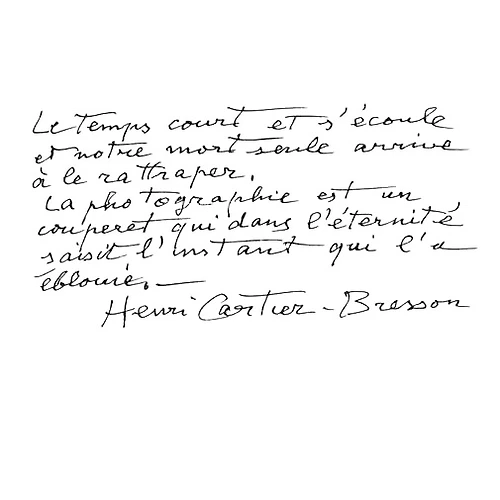 Le temps court et s'écoule
et notre mort seule arrive
à le rattraper.
La photographie est un
couperet qui dans l'éternité
saisit l'instant qui l'a
éblouie. —
Henri Cartier-Bresson